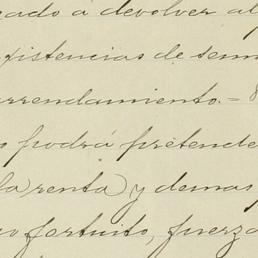 gado á devolver al
existencias de semi
arrendamiento. = 8
s podrá pretende
la renta) y demas
so fortuito, fuerza